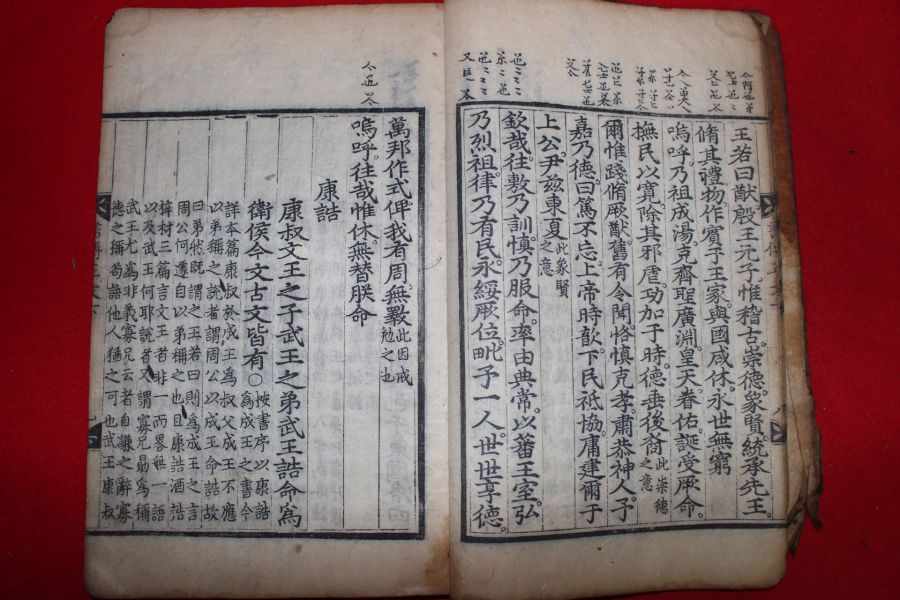 王若曰猷殷王元子惟稽古崇德象賢統承先王
脩其禮物作賓于王家與國咸休永世無窮
嗚呼乃祖成湯克齊聖廣淵皇天眷佑誕受厥命
撫民以寬除其邪虐功加于時德垂後裔此崇德之意
爾惟踐脩厥猷舊有令聞恪慎克孝肅恭神人予
嘉乃德曰篤不忘上帝時歆下民祗協庸建爾于
上公尹茲東夏此象賢之意
欽哉往敷乃訓慎乃服命率由典常以蕃王室弘
乃烈祖律乃有民永綏厥位毗予一人世世享德
萬邦作式俾我有周無斁此因戒勉之也
嗚呼往哉惟休無替朕命
康誥
康叔文王之子武王之弟武王誥命爲
衛侯今文古文皆有○按書序以康誥爲成王之書今
詳本篇康叔於成王爲叔父成王不應
以弟稱之說者謂周公以成王命誥故
曰弟然既謂之王若曰則爲成王之言
周公何遽自以弟稱之也且康誥酒誥
梓材三篇言文王者非一而畧無一語
以及武王何耶說者又謂寡兄勗爲稱
武王尤爲非義寡兄云者自謙之辭寡
德之稱苟語他人猶之可也武王康叔